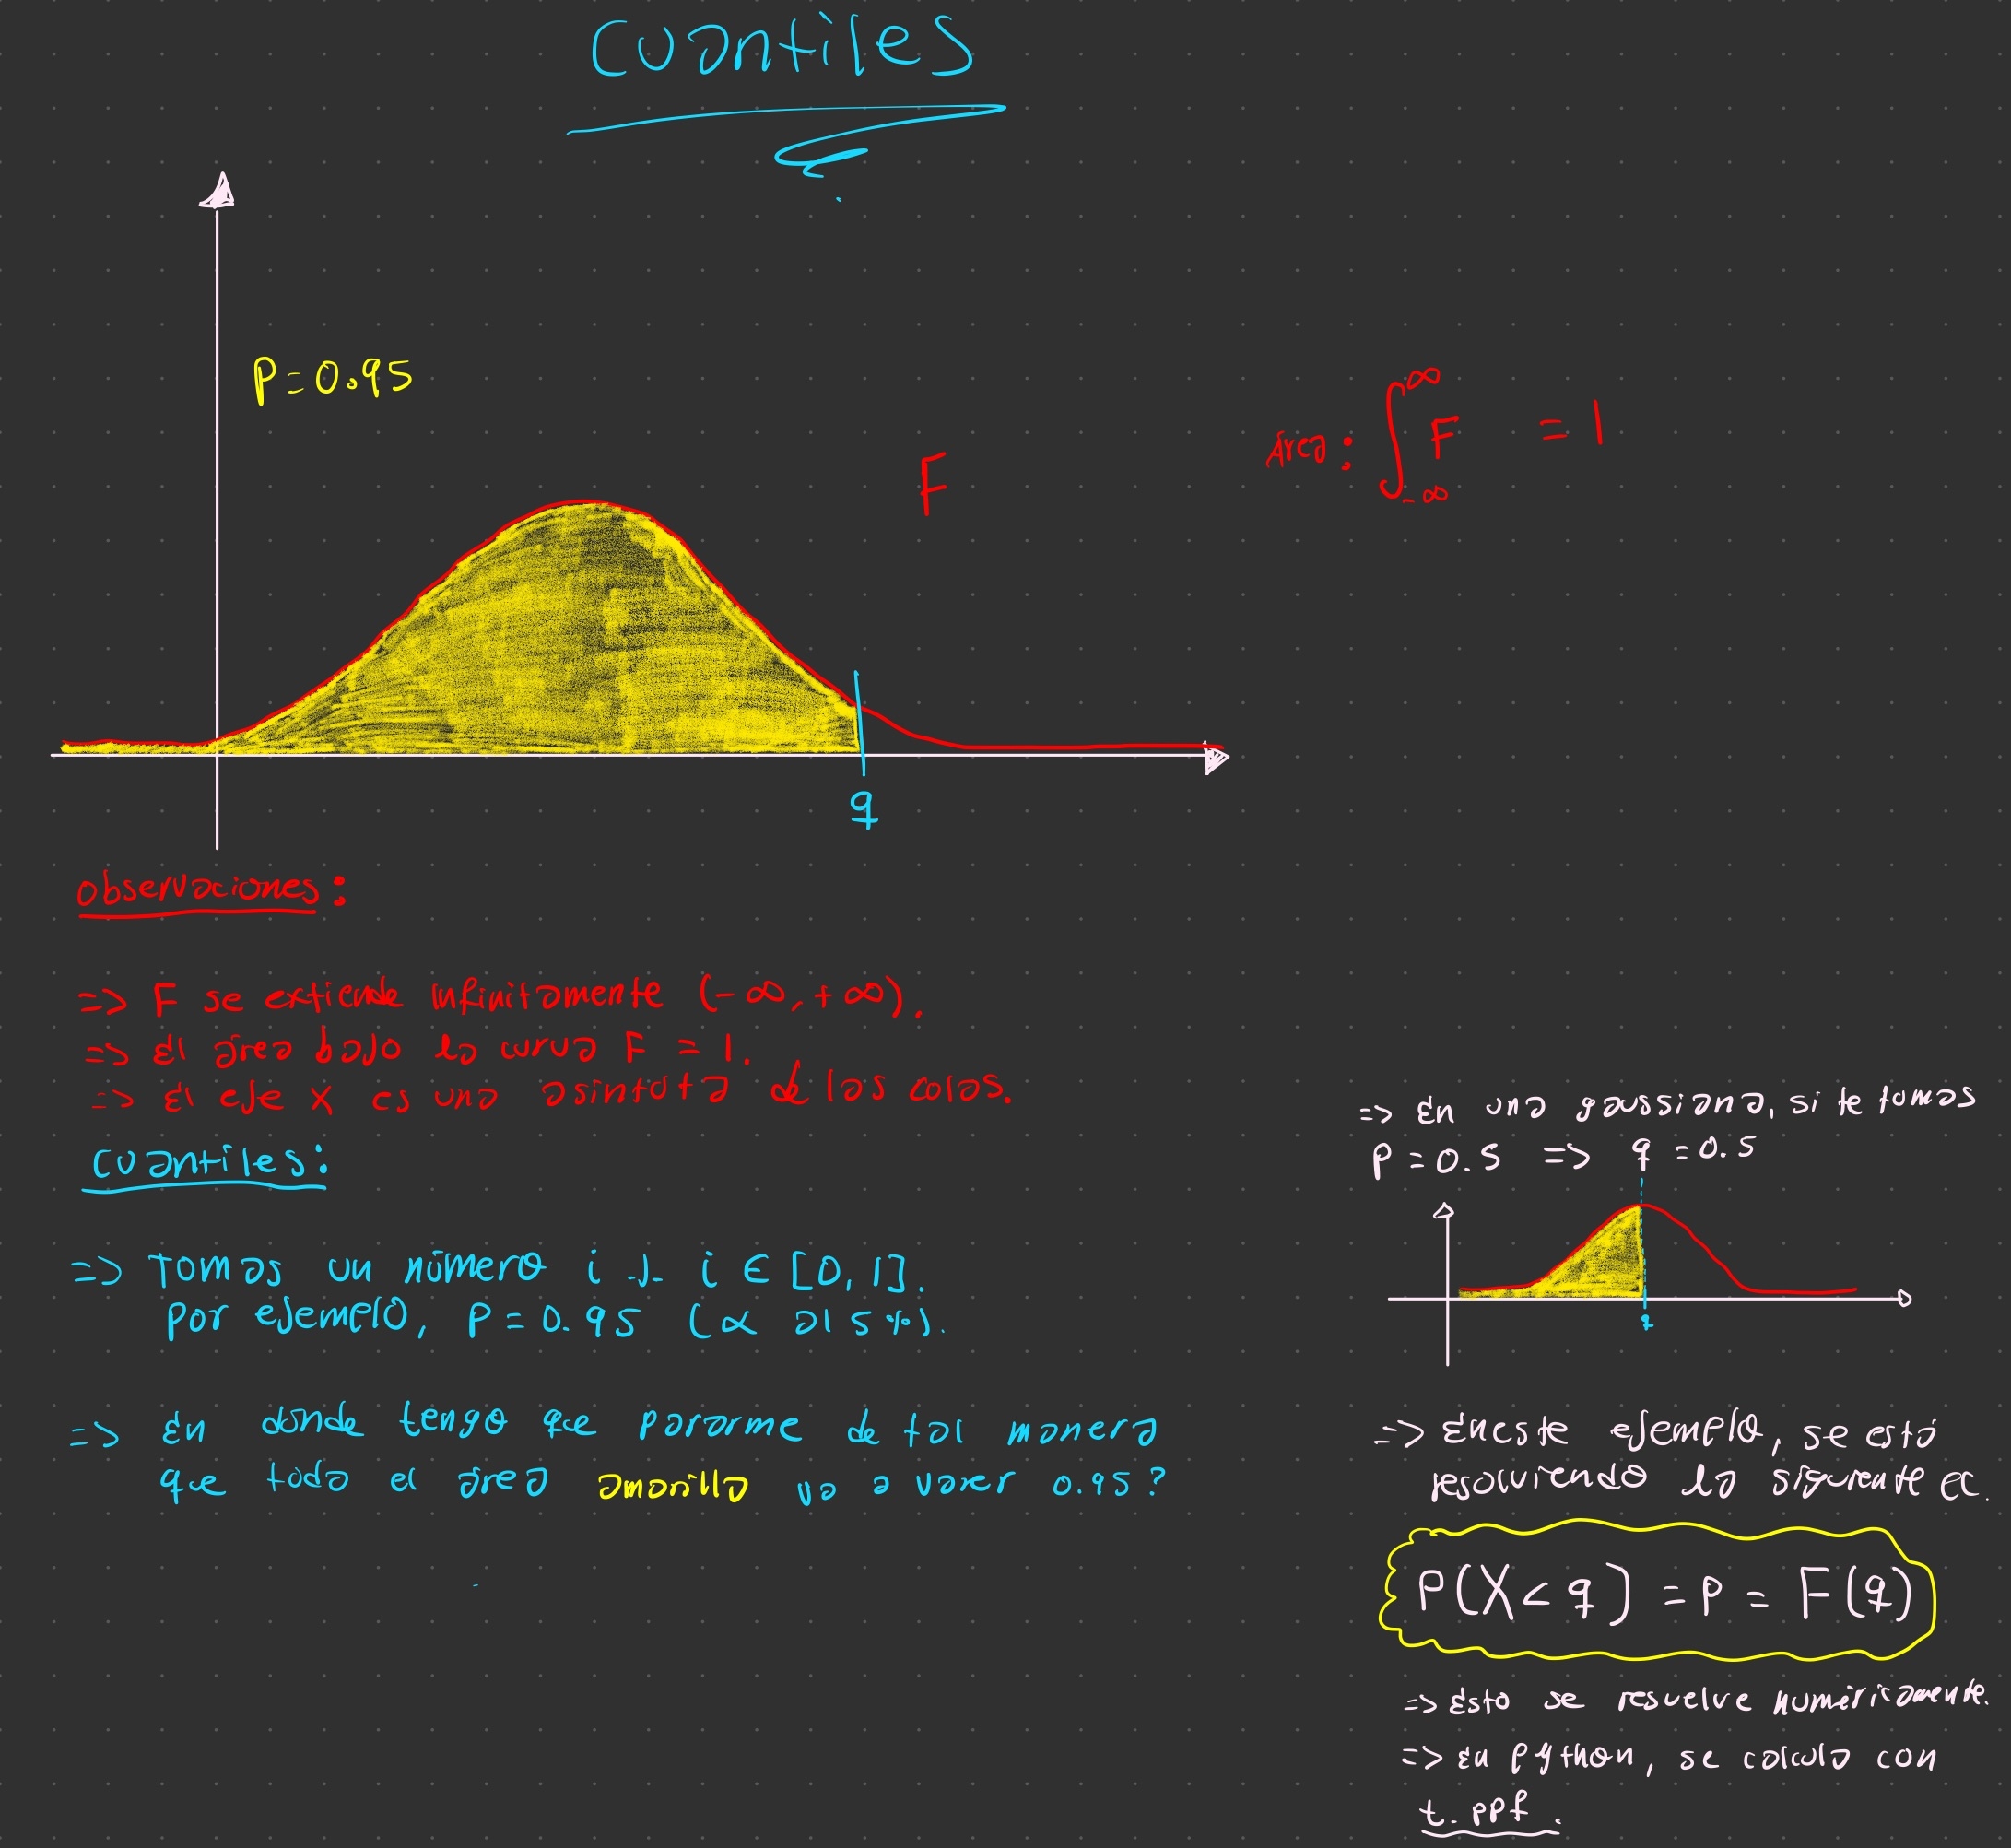 Cuantiles
P=0.95
F
Area: ∫_{-∞}^{∞} F = 1
q
Observaciones:
=> F se extiende infinitamente (-∞, +∞).
=> El área bajo la curva F = 1.
=> El eje X es una asíntota de las colas.
Cuantiles:
=> Tomas un número i .|. i ∈ [0,1].
Por ejemplo, P=0.95 (α al 5%).
=> En dónde tengo que pararme de tal manera
que todo el área amarilla va a valer 0.95?
=> En una gaussiana, si te tomas
P=0.5 => q=0.5
q
=> En este ejemplo, se está
resolviendo la siguiente ec.
P(X<q) = P = F(q)
=> Esto se resuelve numéricamente.
=> En Python, se calcula con
t.ppf.